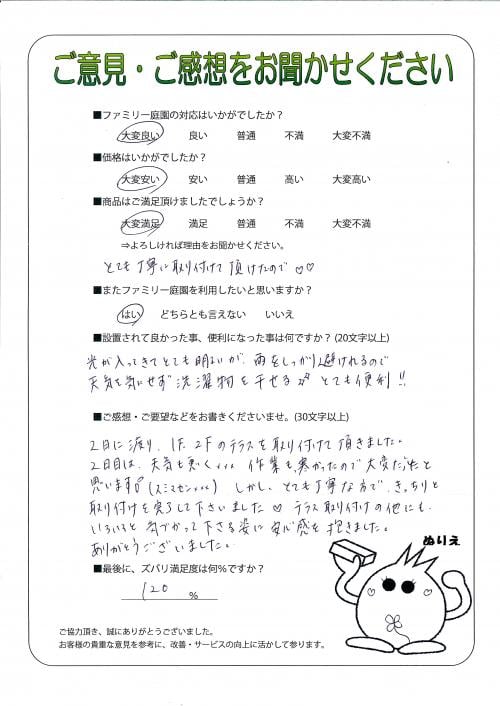 ご意見・ご感想をお聞かせください
■ファミリー庭園の対応はいかがでしたか？
大変良い 良い 普通 不満 大変不満
■価格はいかがでしたか？
大変安い 安い 普通 高い 大変高い
■商品はご満足頂けましたでしょうか？
大変満足 満足 普通 不満 大変不満
⇒よろしければ理由をお聞かせください。
とても丁寧に取り付けて頂けたので♡♡
■またファミリー庭園を利用したいと思いますか？
はい どちらとも言えない いいえ
■設置されて良かった事、便利になった事は何ですか？(20文字以上)
光が入ってきてとても明るいが、雨をしっかり避けれるので
天気を気にせず洗濯物を干せるが とても便利!!
■ご感想・ご要望などをお書きくださいませ。(30文字以上)
2日に渡り、1F.2Fのテラスを取り付けて頂きました。
2日目は、天気も悪く... 作業も寒かったので大変だったと
思います (スミマセン...) しかし、とても丁寧な方で、きっちりと
取り付けを完了して下さいました♡ テラス取り付けの他にも、
いろいろと気づかって下さる姿に安心感を抱きました。
ありがとうございました。
■最後に、ズバリ満足度は何%ですか？
120 %
ぬりえ
ご協力頂き、誠にありがとうございました。
お客様の貴重な意見を参考に、改善・サービスの向上に活かして参ります。